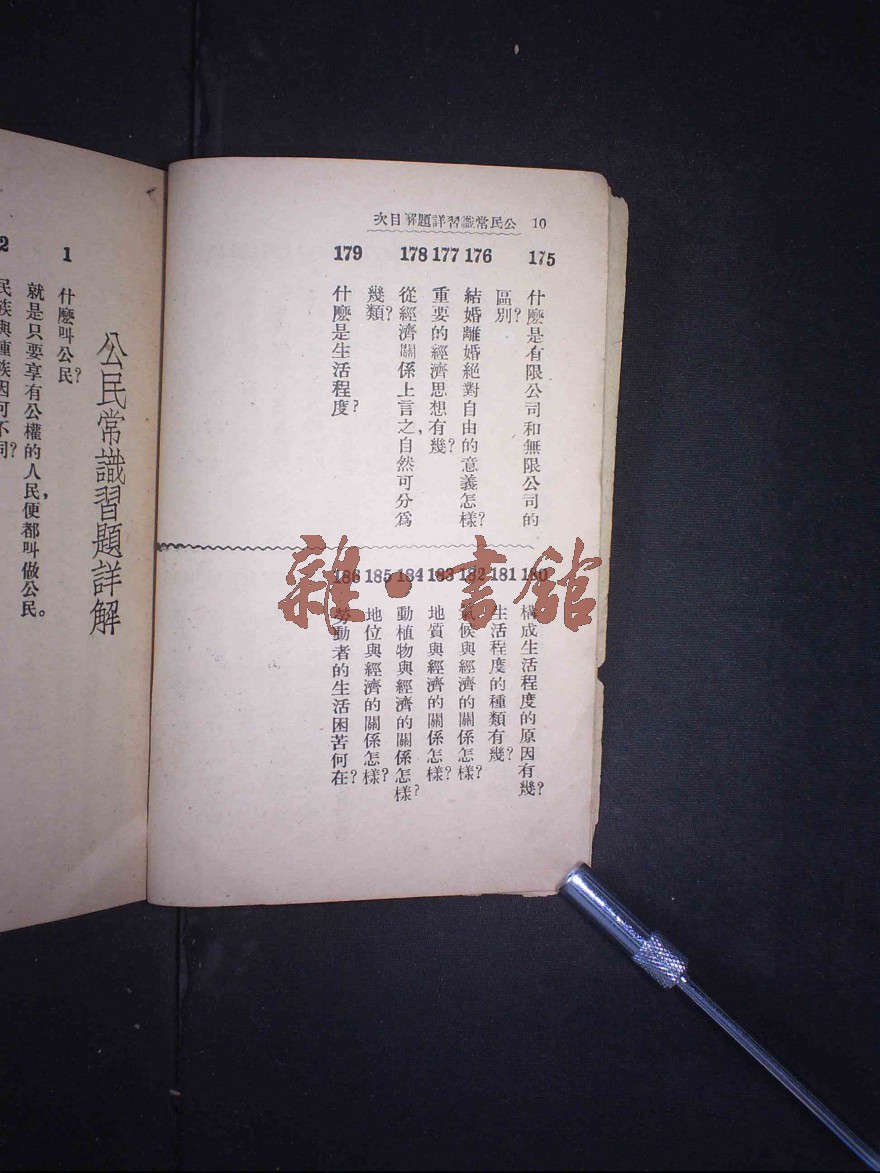 公民常識習題詳解目次 10
175 什麽是有限公司和無限公司的
區別?
176 結婚離婚絕對自由的意義怎樣?
177 重要的經濟思想有幾?
178 從經濟關係上言之,自然可分爲
幾類?
179 什麽是生活程度?
180 構成生活程度的原因有幾?
181 生活程度的種類有幾?
182 氣候與經濟的關係怎樣?
183 地質與經濟的關係怎樣?
184 動植物與經濟的關係怎樣?
185 地位與經濟的關係怎樣?
186 勞動者的生活困苦何在?
雜·書館
公民常識習題詳解
1 什麽叫公民?
就是只要享有公權的人民,便都叫做公民。
2 民族與種族因何不同?